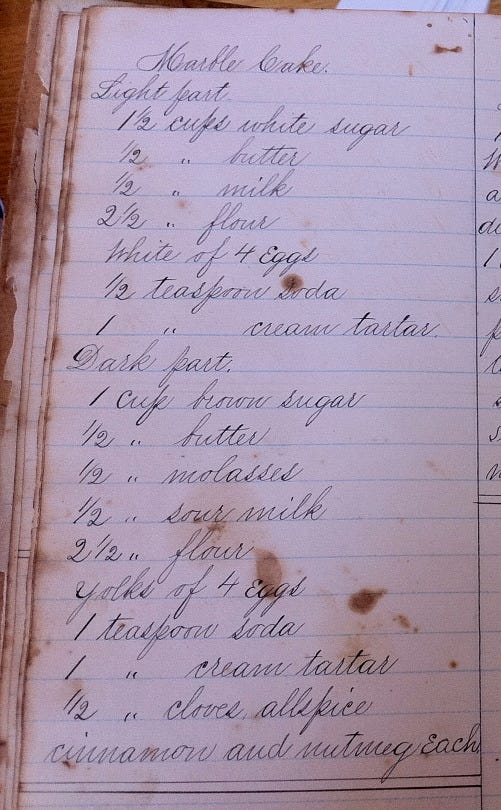 Marble Cake.
Light part.
1½ cups white sugar
½ " butter
½ " milk
2½ " flour
White of 4 Eggs
½ teaspoon soda
1 " cream tartar.
Dark part.
1 cup brown sugar
½ " butter
½ " molasses
½ " sour milk
2½ " flour
Yolks of 4 Eggs
1 teaspoon soda
1 " cream tartar
½ " cloves, allspice
cinnamon and nutmeg Each